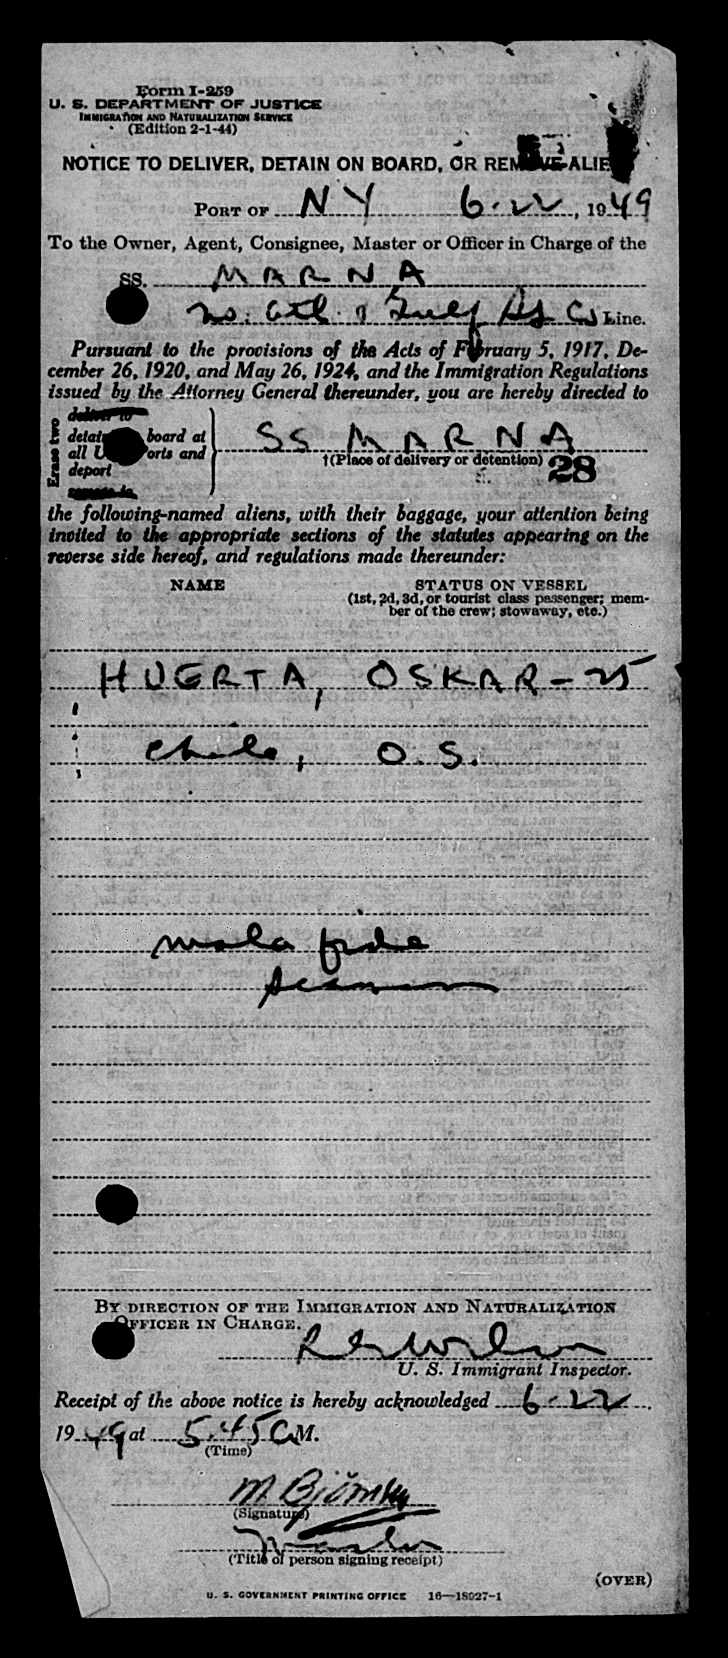 Form I-259
U. S. DEPARTMENT OF JUSTICE
IMMIGRATION AND NATURALIZATION SERVICE
(Edition 2-1-44)
NOTICE TO DELIVER, DETAIN ON BOARD, OR REMOVE ALIE
PORT OF NY 6-22, 1949
To the Owner, Agent, Consignee, Master or Officer in Charge of the
SS. MARNA
No. Atl. & Gulf SS Co Line.
Pursuant to the provisions of the Acts of February 5, 1917, De-
cember 26, 1920, and May 26, 1924, and the Immigration Regulations
issued by the Attorney General thereunder, you are hereby directed to
Erase two
deliver to
detain board at
all U orts and
deport
remove to
SS MARNA
†(Place of delivery or detention) 28
the following-named aliens, with their baggage, your attention being
invited to the appropriate sections of the statutes appearing on the
reverse side hereof, and regulations made thereunder:
NAME STATUS ON VESSEL
(1st, 2d, 3d, or tourist class passenger; mem-
ber of the crew; stowaway, etc.)
HUERTA, OSKAR - 25
Chile, O.S.
mala fide
seaman
BY DIRECTION OF THE IMMIGRATION AND NATURALIZATION
OFFICER IN CHARGE.
R Wilson
U. S. Immigrant Inspector.
Receipt of the above notice is hereby acknowledged 6-22,
1949 at 5.45 A M.
(Time)
M.
(Signature)
Master
(Title of person signing receipt)
(OVER)
U. S. GOVERNMENT PRINTING OFFICE 16—18027-1